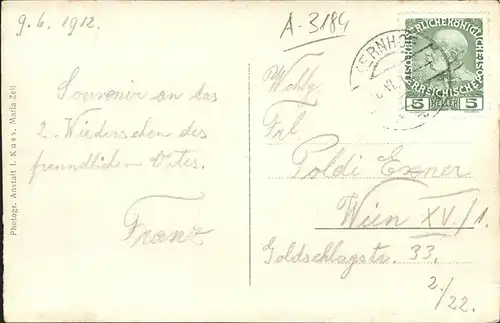 9. 6. 1912.
A-3184
KAISERLICHEKÖNIGLICHE ÖSTERREICHISCHE POST
5 HELLER 5
Souvenir an das
2. Wiedersehen des
freundlichen Ortes.
Franz
Wohlg.
Frl
Poldi Exner
Wien XV/1.
Goldschlagstr. 33.
2./22.
Photogr. Anstalt J. Kuss, Maria Zell.